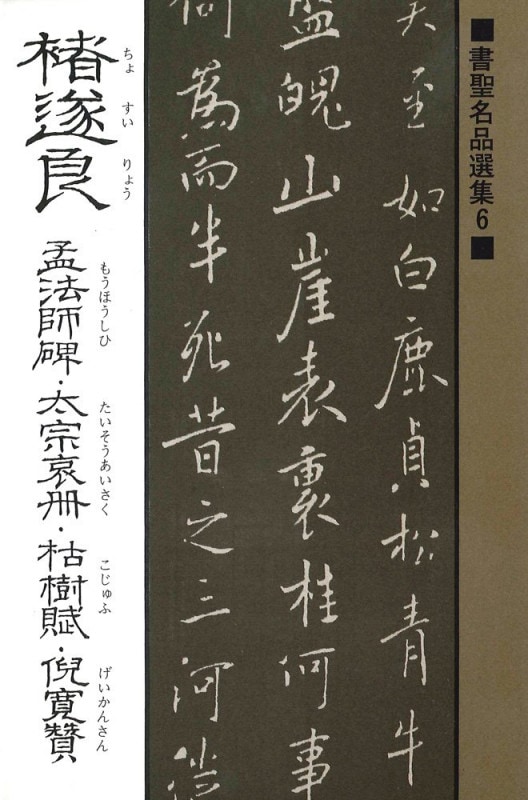 ■書聖名品選集6■
天至如白鹿貞松青牛
盤魄山崖表裏桂何事
為而半死昔之三河
褚遂良
ちょ すい りょう
孟法師碑・太宗哀册・枯樹賦・倪寛贊
もうほうしひ たいそうあいさく こじゅふ げいかんさん